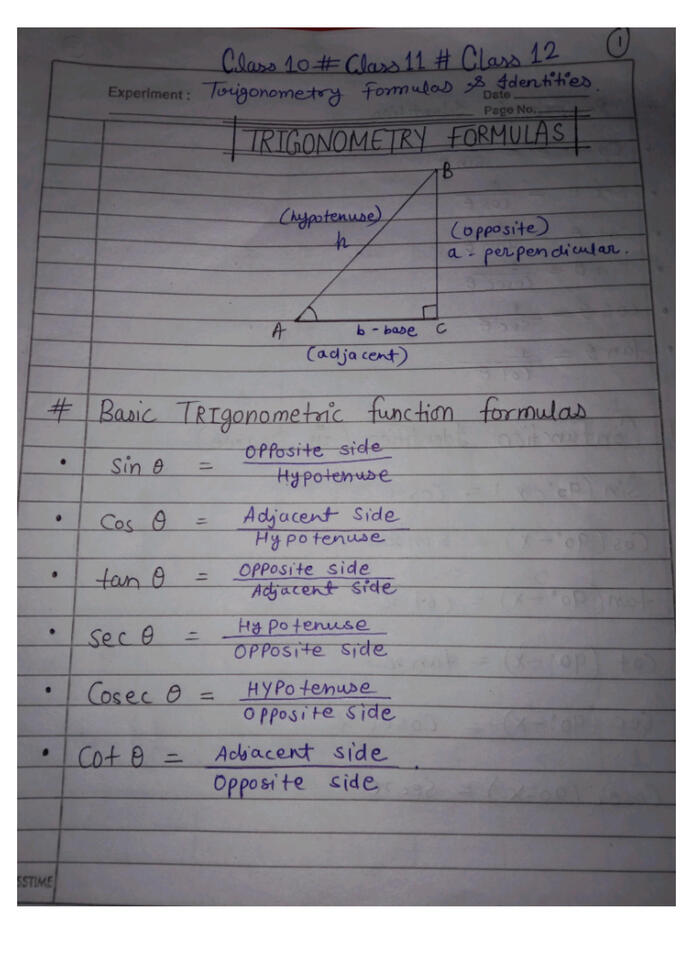 1
Class 10 # Class 11 # Class 12
Experiment : Trigonometry Formulas & Identities.
Date
Page No.
TRIGONOMETRY FORMULAS
B
(hypotenuse)
h
(opposite)
a - perpendicular.
A
b - base
C
(adjacent)
# Basic TRIgonometric function formulas
• sin θ = Opposite side / Hypotenuse
• Cos θ = Adjacent Side / Hypotenuse
• tan θ = Opposite side / Adjacent side
• sec θ = Hypotenuse / Opposite side
• Cosec θ = Hypotenuse / Opposite side
• Cot θ = Adjacent side / Opposite side .
SSTIME